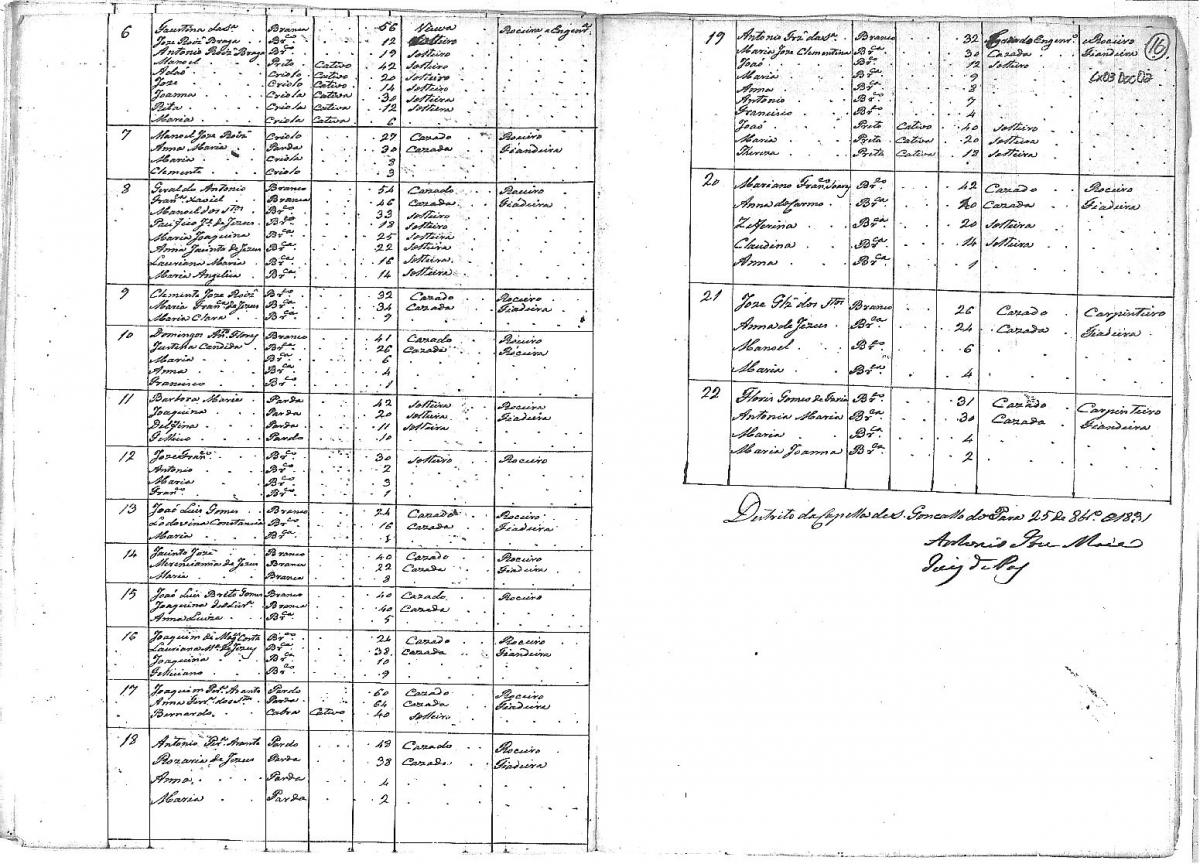 6 Faustina da Sª Branca 56 Viuva Roceira e Engenrª
Joze Roiz' Braga Brco 12 Solteiro
Antonio Roiz' Braga Brco 19 Solteiro
Manoel Preto Cativo 42 Solteiro
Adão Criolo Cativo 20 Solteiro
Joze Criolo Cativo 14 Solteiro
Joanna Criola Cativa 30 Solteira
Rita Criola Cativa 12 Solteira
Maria Criola Cativa 6
7 Manoel Joze Roiz' Criolo 27 Cazado Roceiro
Anna Maria Parda 30 Cazada Fiandeira
Maria Criola 3
Clemente Criolo 3
8 Geraldo Antonio Branco 54 Cazado Roceiro
Francª Xaviel Branca 46 Cazada Fiadeira
Manoel dos Stos Brco 33 Solteiro
Pacifico de Jezus Brco 18 Solteiro
Maria Joaquina Brca 25 Solteira
Anna Jacinto de Jezus Brca 22 Solteira
Lauriana Maria Brca 16 Solteira
Maria Angelica Brca 14 Solteira
9 Clemente Joze Roiz' Brco 32 Cazado Roceiro
Maria Franca de Jezus Brca 34 Cazada Fiadeira
Maria Clara Brca 9
10 Domingos Anto Flores Branco 41 Cazado Roceiro
Justina Candida Brca 26 Cazada Roceira
Maria Brca 6
Anna Brca 4
Francisco Brco 1
11 Barbora Maria Parda 42 Solteira Roceira
Joaquina Parda 20 Solteira Fiadeira
Delfina Parda 11 Solteira
Pardo 10
12 Joze Franco Brco 30 Solteiro Roceiro
Antonio Brco 2
Maria Brca 3
Franco Brco 1
13 João Luis Gomes Branco 24 Cazado Roceiro
Lodovina Constancia Brca 16 Cazada Fiadeira
Maria Brca 1
14 Jacinto Joze Branco 40 Cazado Roceiro
de Jezus Branca 22 Cazada Fiadeira
Maria Branca 3
15 João Luis Brito Gomes Branco 40 Cazado Roceiro
Joaquina Branca 40 Cazada
Anna Luiza Brca 5
16 Joaquim de Costa Brco 24 Cazado Roceiro
Lauriana Mª de Jezus Brca 38 Cazada Fiandeira
Joaquina Brca 10
Feliciano Brco 9
17 Joaquim Perª Arante Pardo 60 Cazado Roceiro
Anna dos Stos Parda 64 Cazada Fiadeira
Bernardo Cabra Cativo 40 Solteiro
18 Antonio Perª Arante Pardo 48 Cazado Roceiro
Rozaria de Jezus Parda 38 Cazada Fiadeira
Anna Parda 4
Maria Parda 2
16
LX03 DOC02
19 Antonio da Sª Branco 32 Cazado Engenrº e Roceiro
Maria Joze Clementina Brca 30 Cazada Fiandeira
João Brco 12 Solteiro
Maria Brca 9
Anna Brca 8
Antonio Brco 7
Francisco Brco 4
João Preto Cativo 40 Solteiro
Maria Preta Cativa 20 Solteira
Thereza Preta Cativa 18 Solteira
20 Mariano Franco Brco 42 Cazado Roceiro
Anna do Carmo Brca 40 Cazada Fiadeira
Zefferina Brca 20 Solteira
Claudina Brca 14 Solteira
Anna Brca 1
21 Joze Glz' dos Stos Branco 26 Cazado Carpinteiro
Anna de Jezus Brca 24 Cazada Fiadeira
Manoel Brco 6
Maria Brca 4
22 Floriz Gomes de Faria Brco 31 Cazado Carpinteiro
Antonia Maria Brca 30 Cazada Fiandeira
Maria Brca 4
Maria Joanna Brca 2
Destrito da Capella de S. Goncallo do Para 25 de 8brº de 1831
Antonio Maia
Juiz de Paz